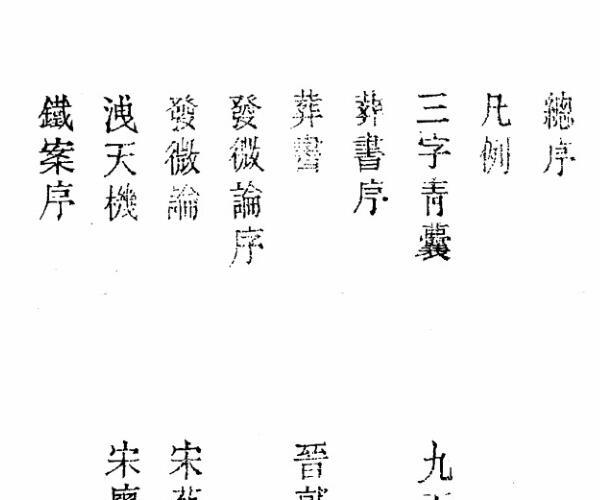 總序
凡例
三字青囊 九
葬書序
葬書 晉
發微論序
發微論 宋
洩天機 宋廖
鐵案序